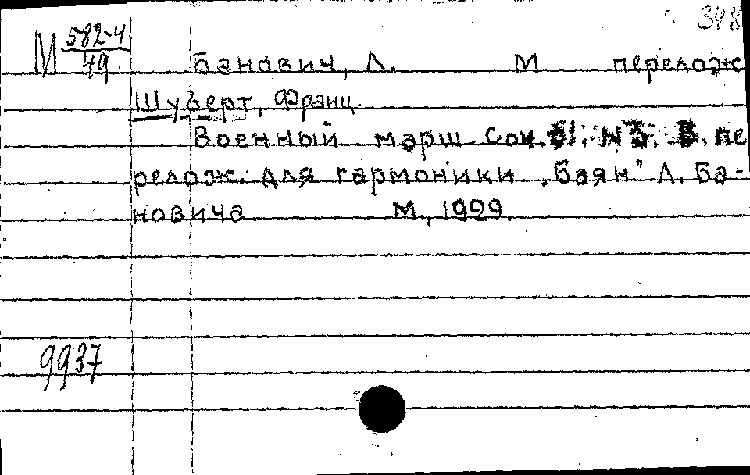 348
М 582-4
49
Банович, Л. М перелож
Шуберт, Франц
Военный марш Соч. 51. №3. В пе
релож. для гармоники „Баян" Л. Ба-
новича М., 1929.
9937